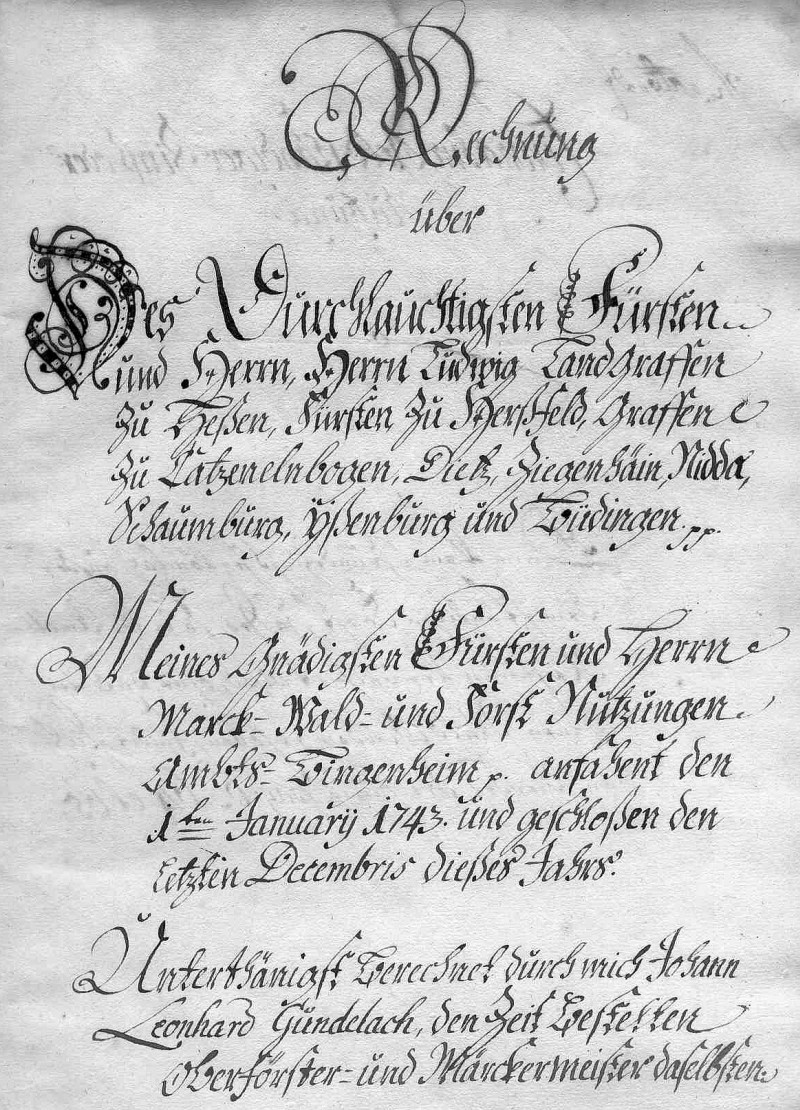 Rechnung
über
Des Durchlauchtigsten Fürsten
und Herrn, Herrn Ludwig LandGraffen
zu Heßen, Fürsten zu Herßfeld, Graffen
zu Catzenelnbogen, Dietz, Ziegenhäin, Nidda,
Schaumburg, Yßenburg und Büdingen pp.
Meines Gnädigsten Fürsten und Herrn
Marck- Wald- und Forst Nutzungen
Ambts- Bingenheim p. anfahent den
1ten January 1743. und geschloßen den
letzten Decembris dießes Jahrs.
Unterthänigst berechnet durch mich Johann
Leonhard Gündelach, den Zeit bestellten
Oberförster- und Märckermeister daselbsten.